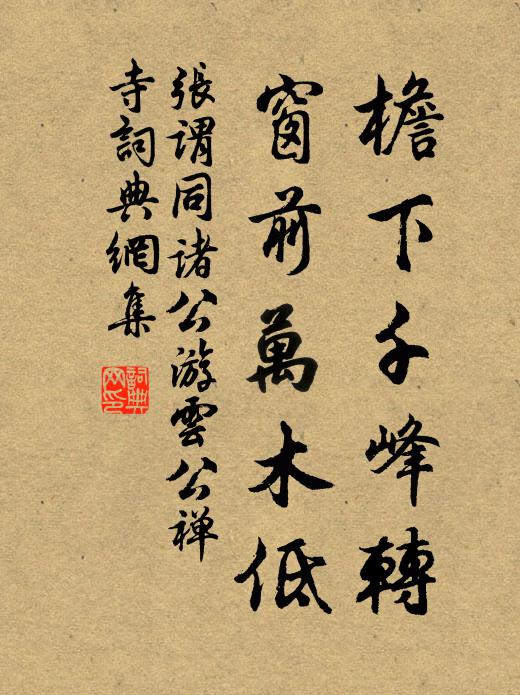 檐下千峰轉
窗前萬木低
張謂同諸公游雲公禅
寺詞典網集
詞典
网印